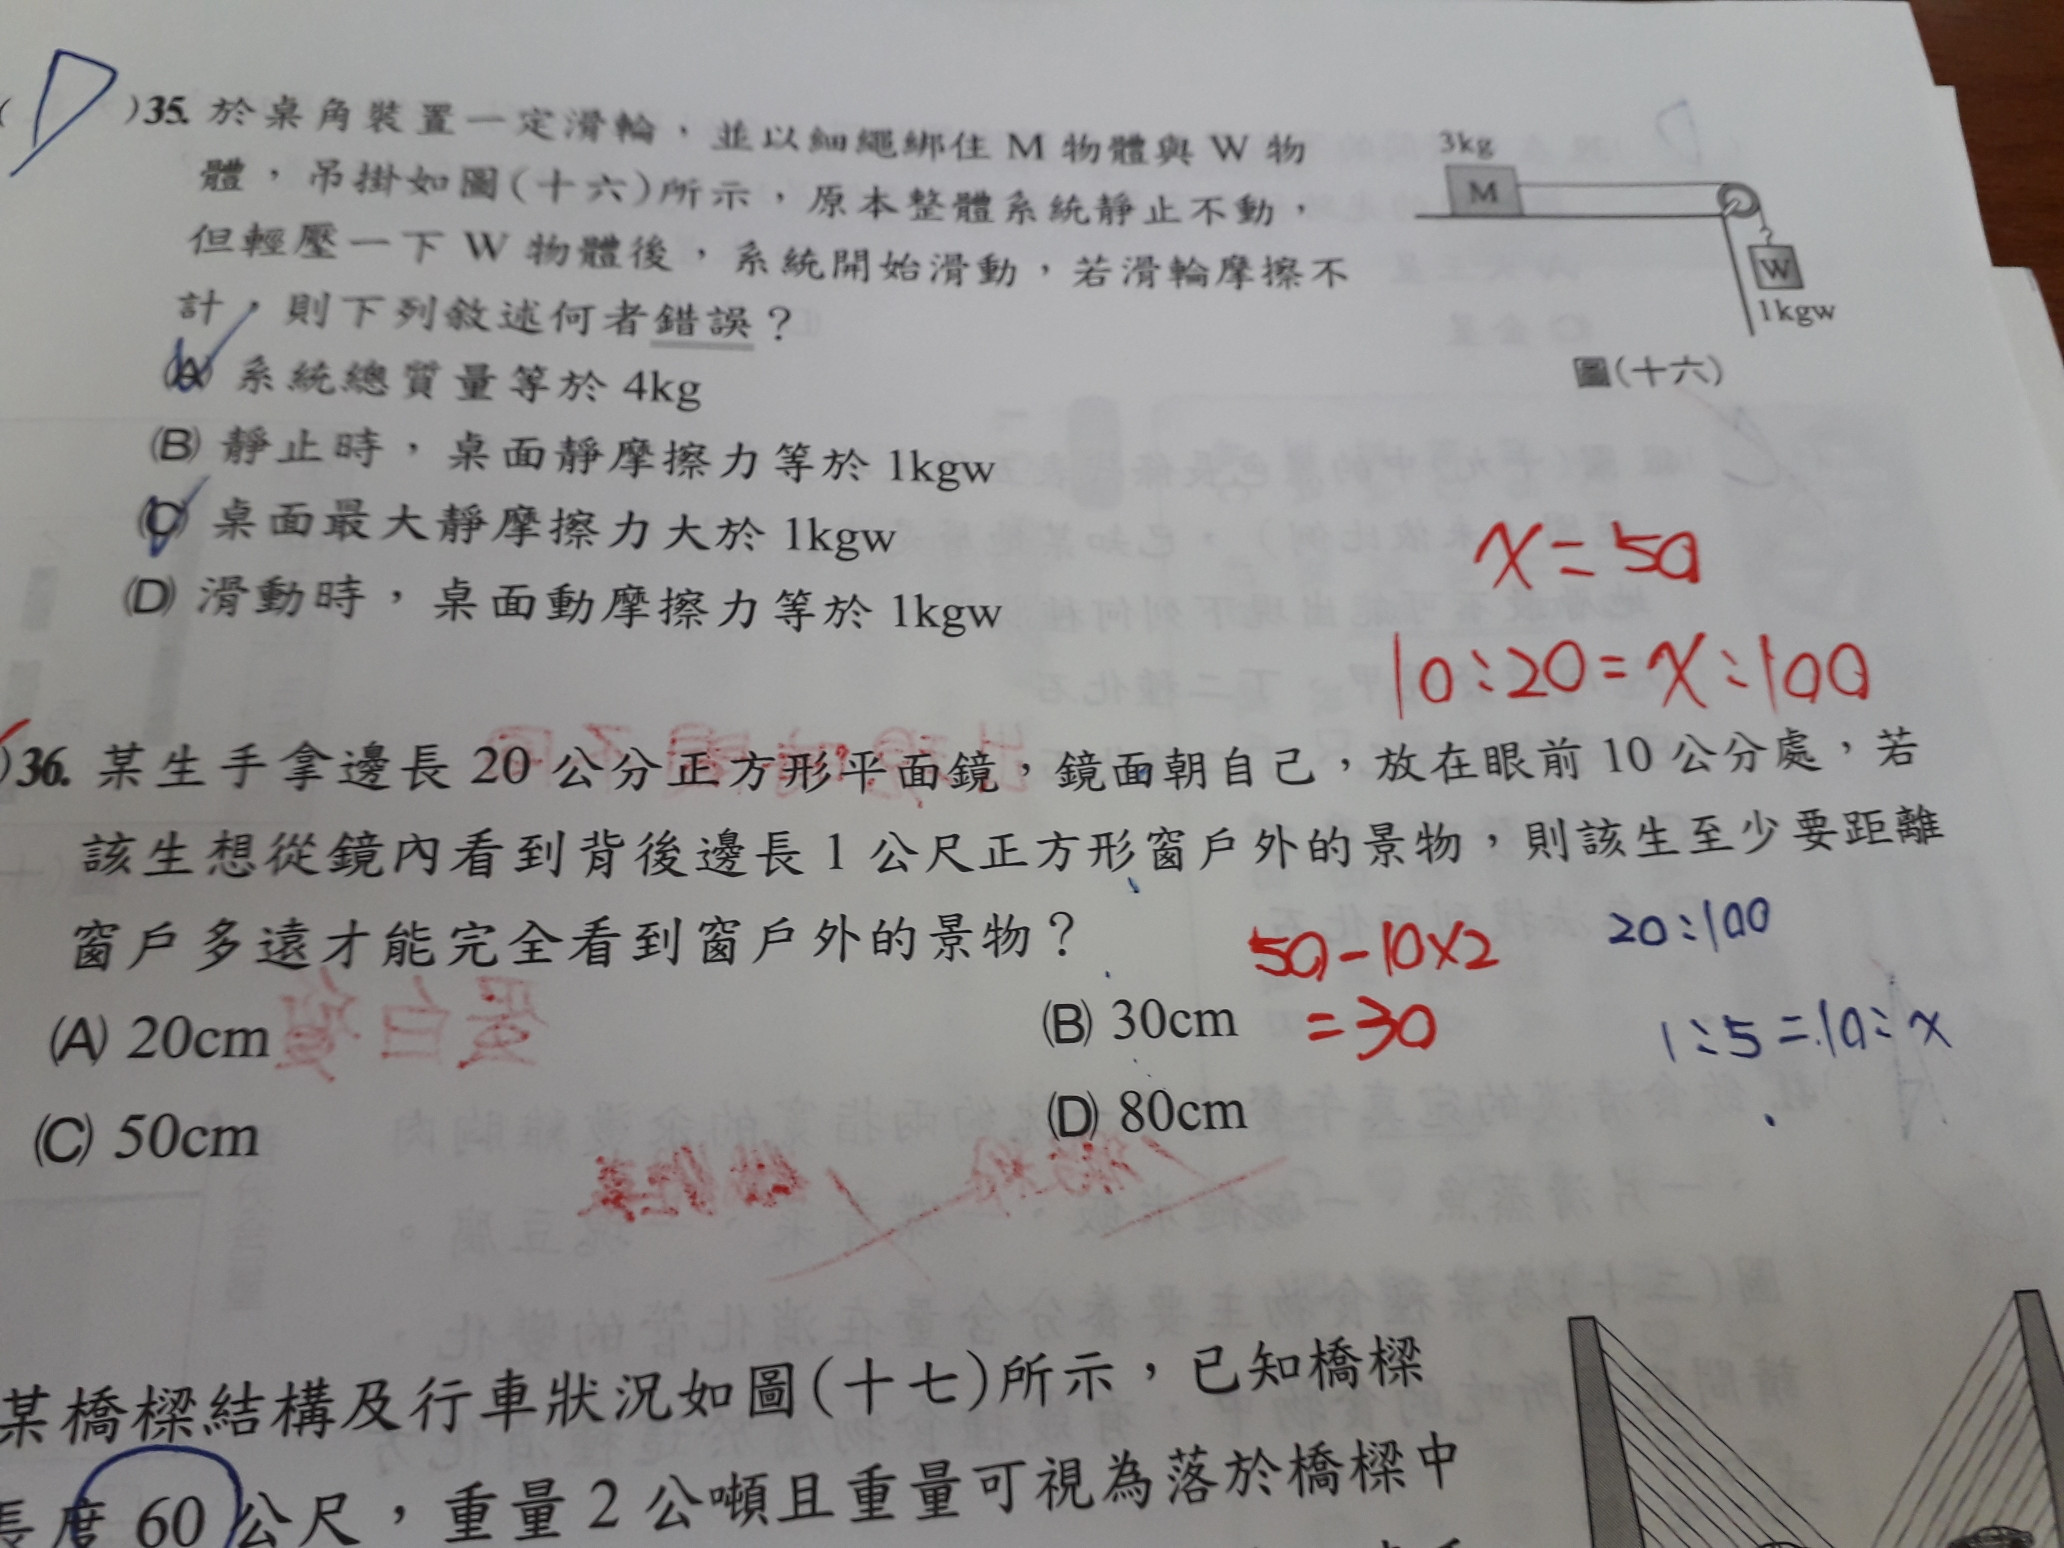 ( D )35. 於桌角裝置一定滑輪，並以細繩綁住 M 物體與 W 物
體，吊掛如圖(十六)所示，原本整體系統靜止不動，
但輕壓一下 W 物體後，系統開始滑動，若滑輪摩擦不
計，則下列敘述何者錯誤？
(A) 系統總質量等於 4kg
(B) 靜止時，桌面靜摩擦力等於 1kgw
(C) 桌面最大靜摩擦力大於 1kgw
(D) 滑動時，桌面動摩擦力等於 1kgw
3kg
M
W
1kgw
圖(十六)
x=50
10:20=x:100
)36. 某生手拿邊長 20 公分正方形平面鏡，鏡面朝自己，放在眼前 10 公分處，若
該生想從鏡內看到背後邊長 1 公尺正方形窗戶外的景物，則該生至少要距離
窗戶多遠才能完全看到窗戶外的景物？
(A) 20cm
(B) 30cm
(C) 50cm
(D) 80cm
50-10×2
=30
20:100
1:5=10:x
某橋樑結構及行車狀況如圖(十七)所示，已知橋樑
長度 60 公尺，重量 2 公噸且重量可視為落於橋樑中